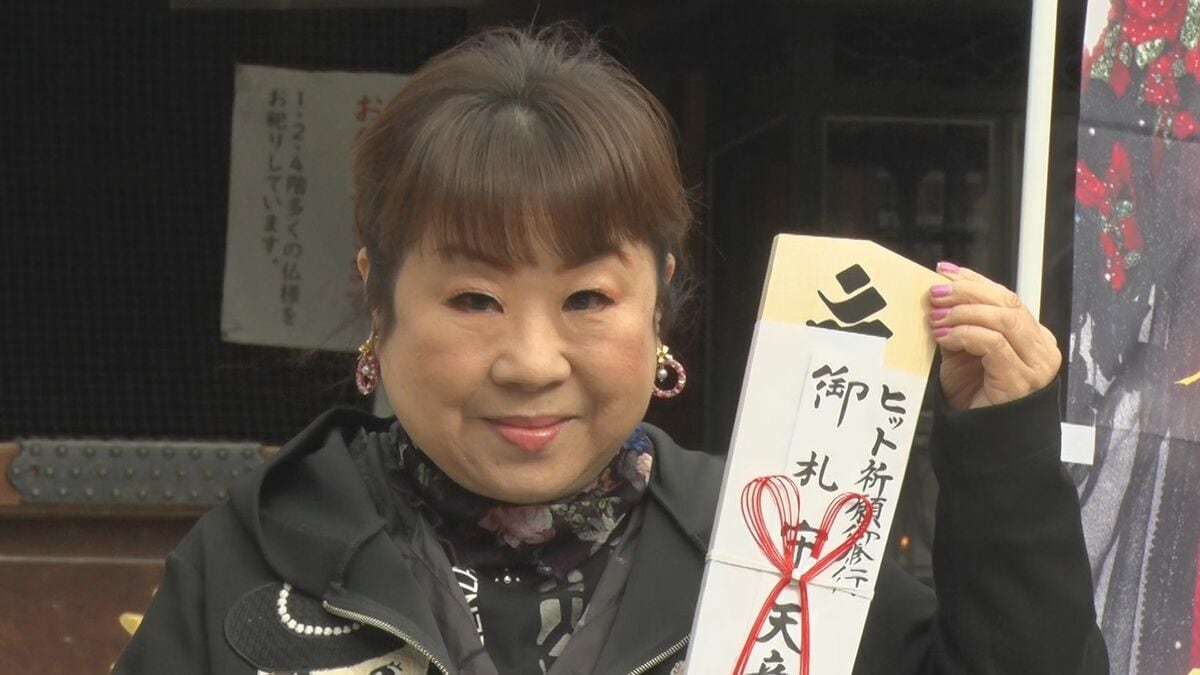 お
1・2・4階多くの仏様を
お祀りしています。
ヒット祈願御修行
御札
守
天童